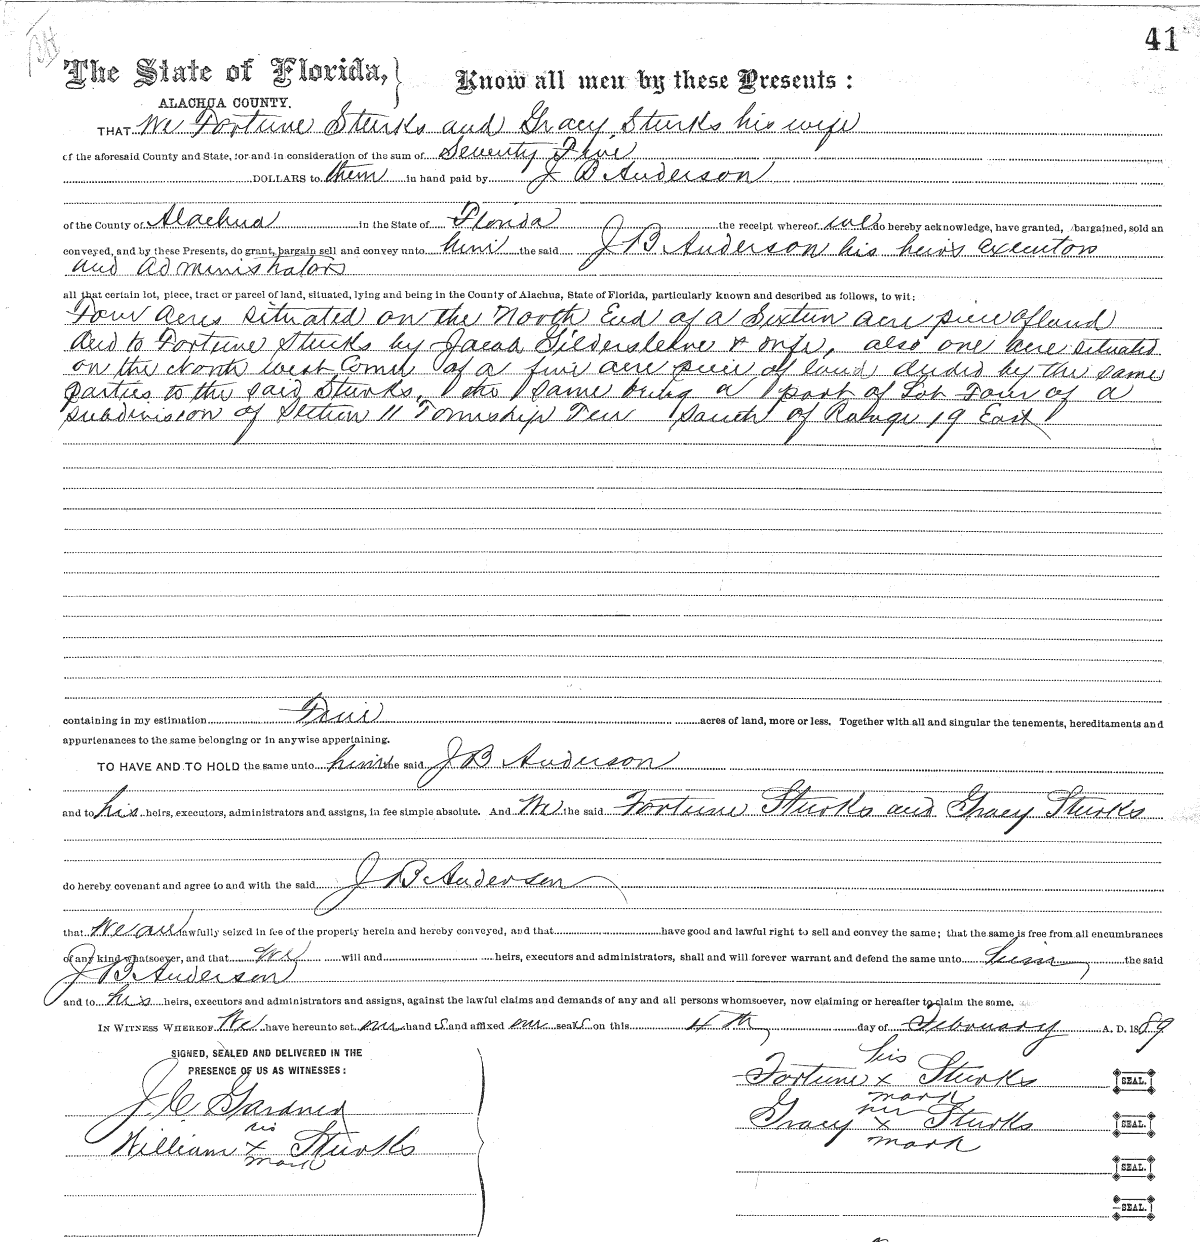 41
The State of Florida,
Know all men by these Presents:
ALACHUA COUNTY.
THAT We Fortune Sturks and Gracy Sturks his wife
of the aforesaid County and State, for and in consideration of the sum of Seventy Five
DOLLARS to them in hand paid by J B Anderson
of the County of Alachua in the State of Florida the receipt whereof we do hereby acknowledge, have granted, bargained, sold an
conveyed, and by these Presents, do grant, bargain sell and convey unto him the said J B Anderson his heirs executors
and administrators
all that certain lot, piece, tract or parcel of land, situated, lying and being in the County of Alachua, State of Florida, particularly known and described as follows, to wit:
Four acres situated on the North End of a Sixteen acre piece of land
to Fortune Sturks by Jacob Gildersleeve & wife, also one acre situated
on the North West Corner of a five acre piece of land deeded by the same
parties to the said Sturks, the same being a part of Lot Four of a
subdivision of Section 11 Township Ten South of Range 19 East
containing in my estimation Five acres of land, more or less. Together with all and singular the tenements, hereditaments and
appurtenances to the same belonging or in anywise appertaining.
TO HAVE AND TO HOLD the same unto him the said J B Anderson
and to his heirs, executors, administrators and assigns, in fee simple absolute. And We the said Fortune Sturks and Gracy Sturks
do hereby covenant and agree to and with the said J B Anderson
that We are lawfully seized in fee of the property herein and hereby conveyed, and that have good and lawful right to sell and convey the same; that the same is free from all encumbrances
of any kind whatsoever, and that We will and heirs, executors and administrators, shall and will forever warrant and defend the same unto him the said
J B Anderson
and to his heirs, executors and administrators and assigns, against the lawful claims and demands of any and all persons whomsoever, now claiming or hereafter to claim the same.
IN WITNESS WHEREOF We have hereunto set our hand s and affixed our seal s on this 4th day of February A. D. 1889
SIGNED, SEALED AND DELIVERED IN THE
PRESENCE OF US AS WITNESSES:
his
Fortune x Sturks SEAL.
mark
J. C. Gardner
her
Gracy x Sturks SEAL.
mark
his
William x Sturks
mark
SEAL.
SEAL.